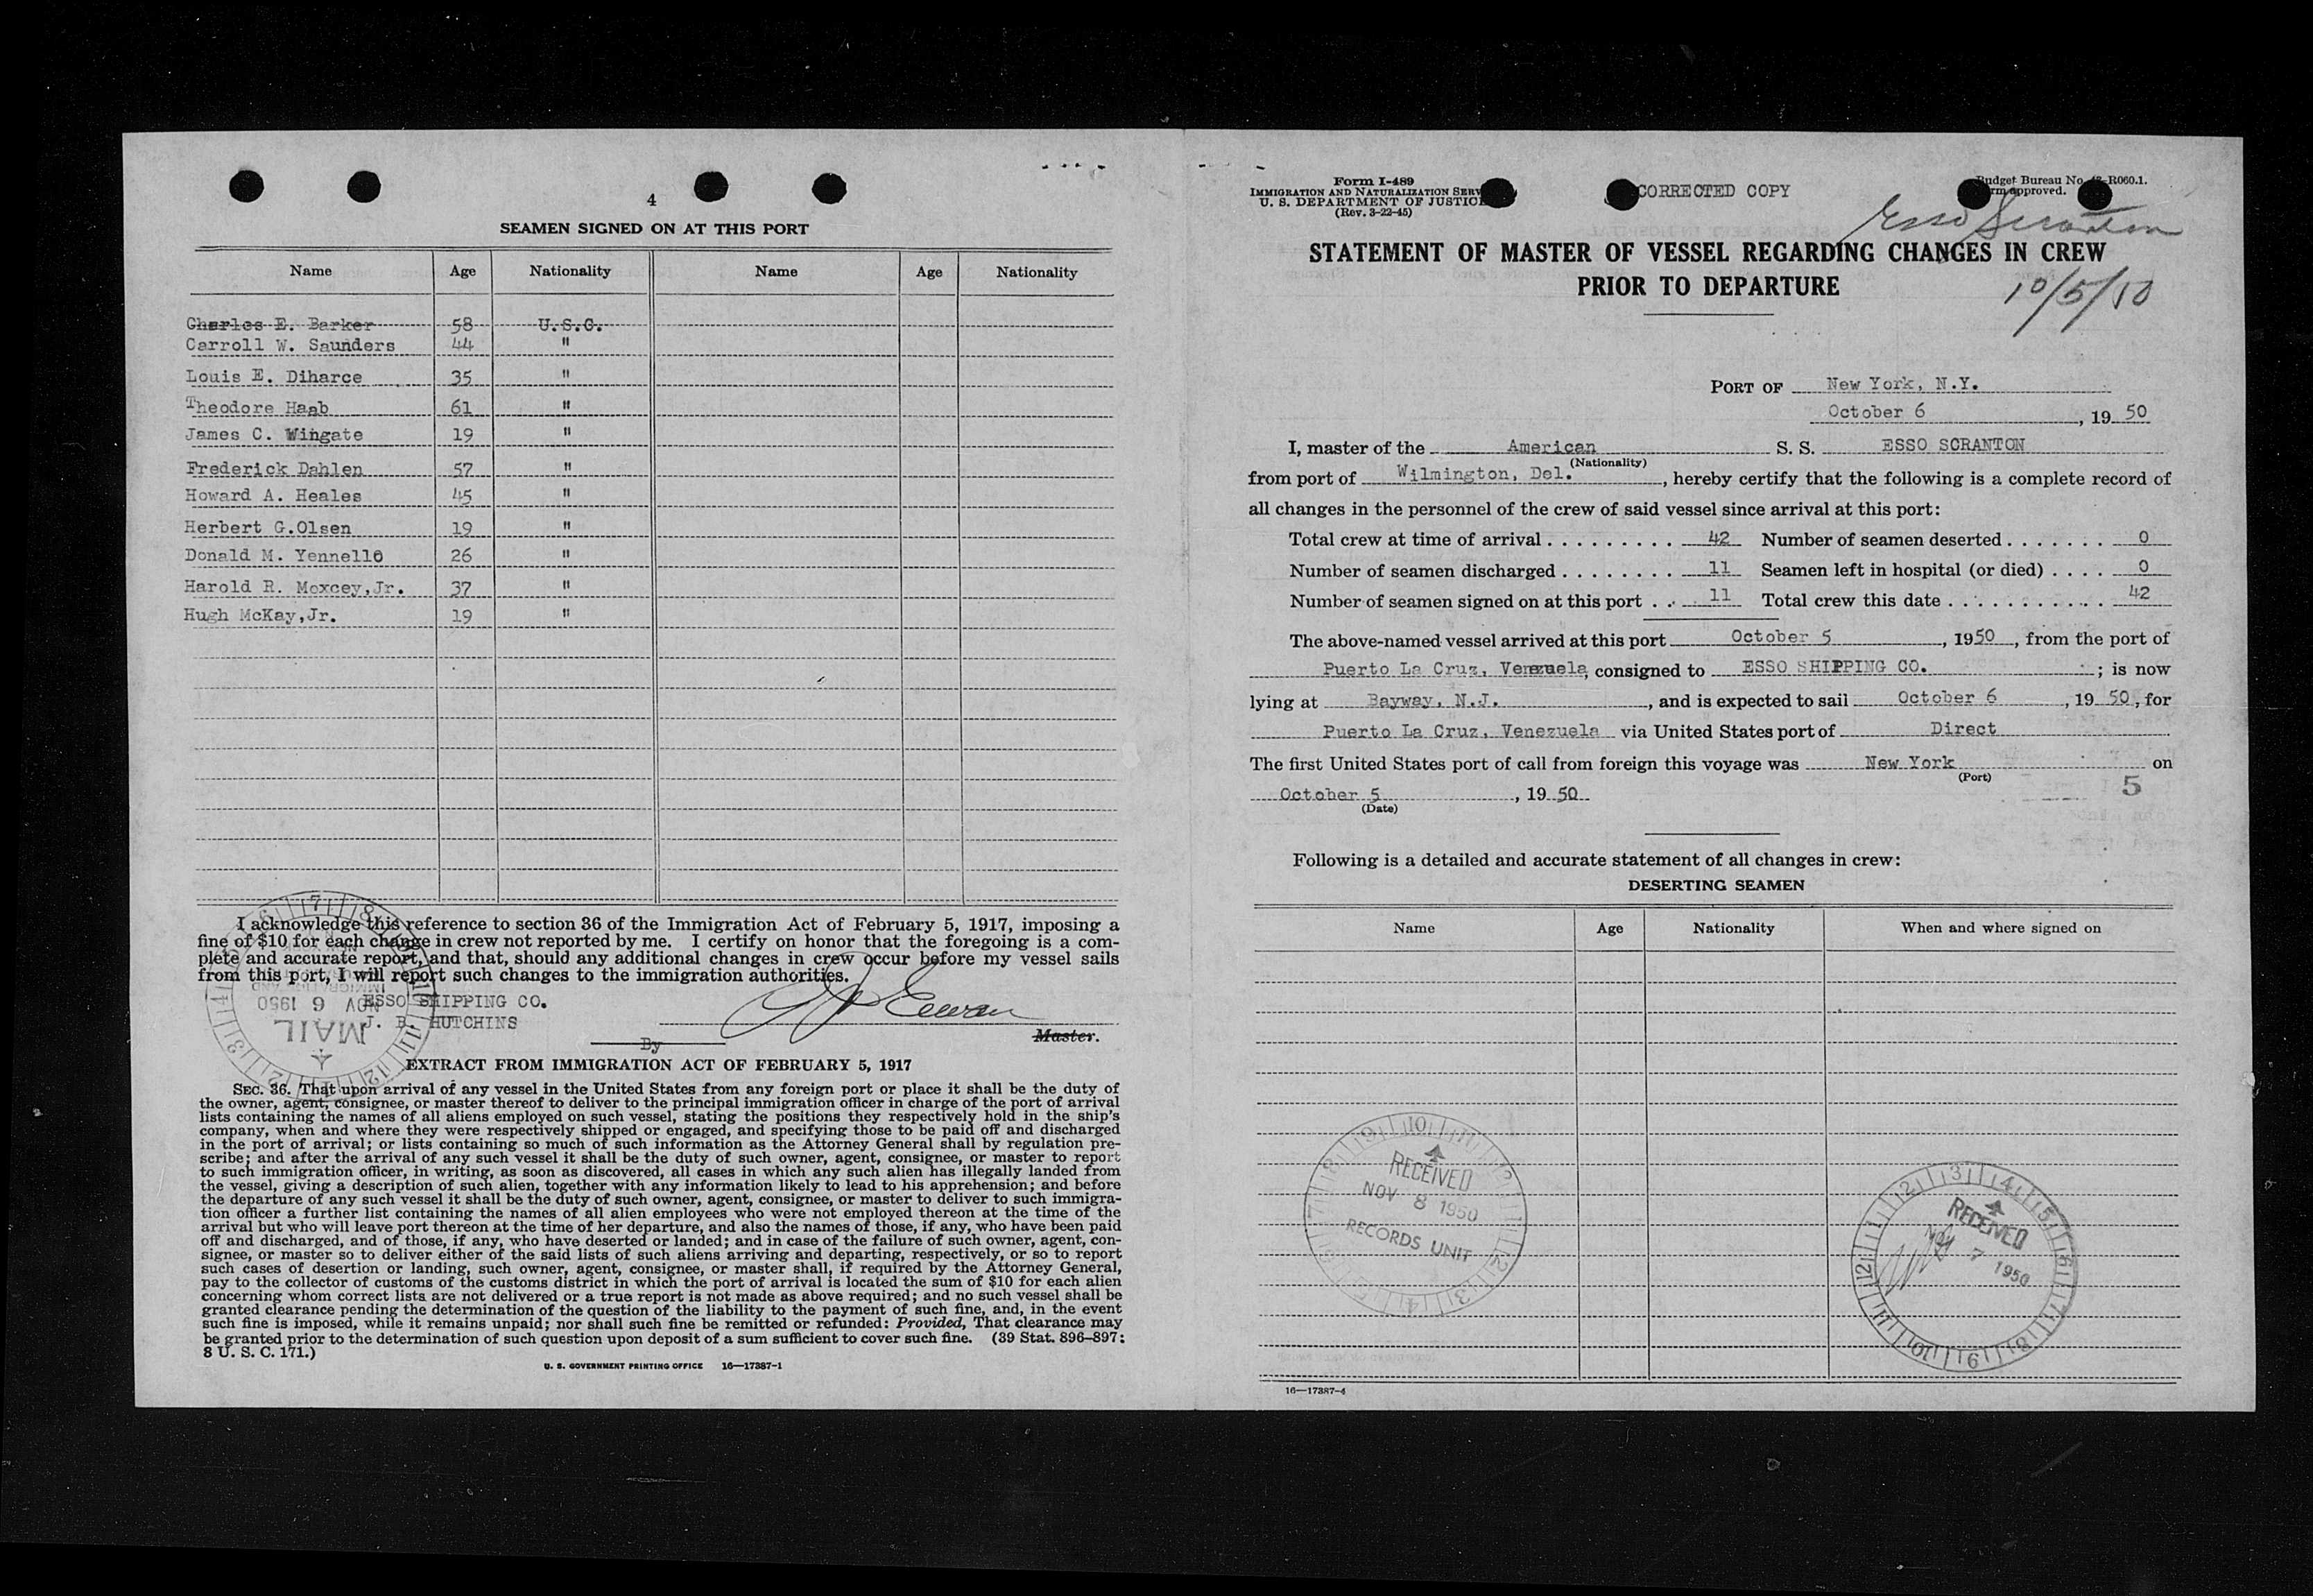 4
SEAMEN SIGNED ON AT THIS PORT
Name Age Nationality Name Age Nationality
Charles E. Barker 58 U.S.C.
Carroll W. Saunders 44 "
Louis E. Diharce 35 "
Theodore Haab 61 "
James C. Wingate 19 "
Frederick Dahlen 57 "
Howard A. Heales 45 "
Herbert G.Olsen 19 "
Donald M. Yennello 26 "
Harold R. Moxcey,Jr. 37 "
Hugh McKay,Jr. 19 "
I acknowledge this reference to section 36 of the Immigration Act of February 5, 1917, imposing a
fine of $10 for each change in crew not reported by me. I certify on honor that the foregoing is a com-
plete and accurate report, and that, should any additional changes in crew occur before my vessel sails
from this port, I will report such changes to the immigration authorities.
ESSO SHIPPING CO.
J. B. HUTCHINS
Master.
By
NOV 6 1950
MAIL
EXTRACT FROM IMMIGRATION ACT OF FEBRUARY 5, 1917
SEC. 36. That upon arrival of any vessel in the United States from any foreign port or place it shall be the duty of
the owner, agent, consignee, or master thereof to deliver to the principal immigration officer in charge of the port of arrival
lists containing the names of all aliens employed on such vessel, stating the positions they respectively hold in the ship's
company, when and where they were respectively shipped or engaged, and specifying those to be paid off and discharged
in the port of arrival; or lists containing so much of such information as the Attorney General shall by regulation pre-
scribe; and after the arrival of any such vessel it shall be the duty of such owner, agent, consignee, or master to report
to such immigration officer, in writing, as soon as discovered, all cases in which any such alien has illegally landed from
the vessel, giving a description of such alien, together with any information likely to lead to his apprehension; and before
the departure of any such vessel it shall be the duty of such owner, agent, consignee, or master to deliver to such immigra-
tion officer a further list containing the names of all alien employees who were not employed thereon at the time of the
arrival but who will leave port thereon at the time of her departure, and also the names of those, if any, who have been paid
off and discharged, and of those, if any, who have deserted or landed; and in case of the failure of such owner, agent, con-
signee, or master so to deliver either of the said lists of such aliens arriving and departing, respectively, or so to report
such cases of desertion or landing, such owner, agent, consignee, or master shall, if required by the Attorney General,
pay to the collector of customs of the customs district in which the port of arrival is located the sum of $10 for each alien
concerning whom correct lists are not delivered or a true report is not made as above required; and no such vessel shall be
granted clearance pending the determination of the question of the liability to the payment of such fine, and, in the event
such fine is imposed, while it remains unpaid; nor shall such fine be remitted or refunded: Provided, That clearance may
be granted prior to the determination of such question upon deposit of a sum sufficient to cover such fine. (39 Stat. 896–897;
8 U. S. C. 171.)
U. S. GOVERNMENT PRINTING OFFICE 16—17387-1
Form I-489
IMMIGRATION AND NATURALIZATION SERV
U. S. DEPARTMENT OF JUSTIC
(Rev. 3-22-45)
CORRECTED COPY
Budget Bureau No. R060.1.
approved.
Esso Scranton
STATEMENT OF MASTER OF VESSEL REGARDING CHANGES IN CREW
PRIOR TO DEPARTURE
10/5/50
PORT OF New York, N.Y.
October 6, 19 50
I, master of the American S. S. ESSO SCRANTON
(Nationality)
from port of Wilmington, Del., hereby certify that the following is a complete record of
all changes in the personnel of the crew of said vessel since arrival at this port:
Total crew at time of arrival . . . . . . . . . 42 Number of seamen deserted . . . . . . . 0
Number of seamen discharged . . . . . . . . 11 Seamen left in hospital (or died) . . . . 0
Number of seamen signed on at this port . . . 11 Total crew this date . . . . . . . . . . . 42
The above-named vessel arrived at this port October 5, 1950, from the port of
Puerto La Cruz, Venezuela, consigned to ESSO SHIPPING CO. ; is now
lying at Bayway, N.J., and is expected to sail October 6, 19 50, for
Puerto La Cruz, Venezuela via United States port of Direct
The first United States port of call from foreign this voyage was New York on
(Port)
October 5, 19 50
(Date)
5
Following is a detailed and accurate statement of all changes in crew:
DESERTING SEAMEN
Name Age Nationality When and where signed on
RECEIVED
NOV 8 1950
RECORDS UNIT
RECEIVED
NOV 7 1950
16—17387-4